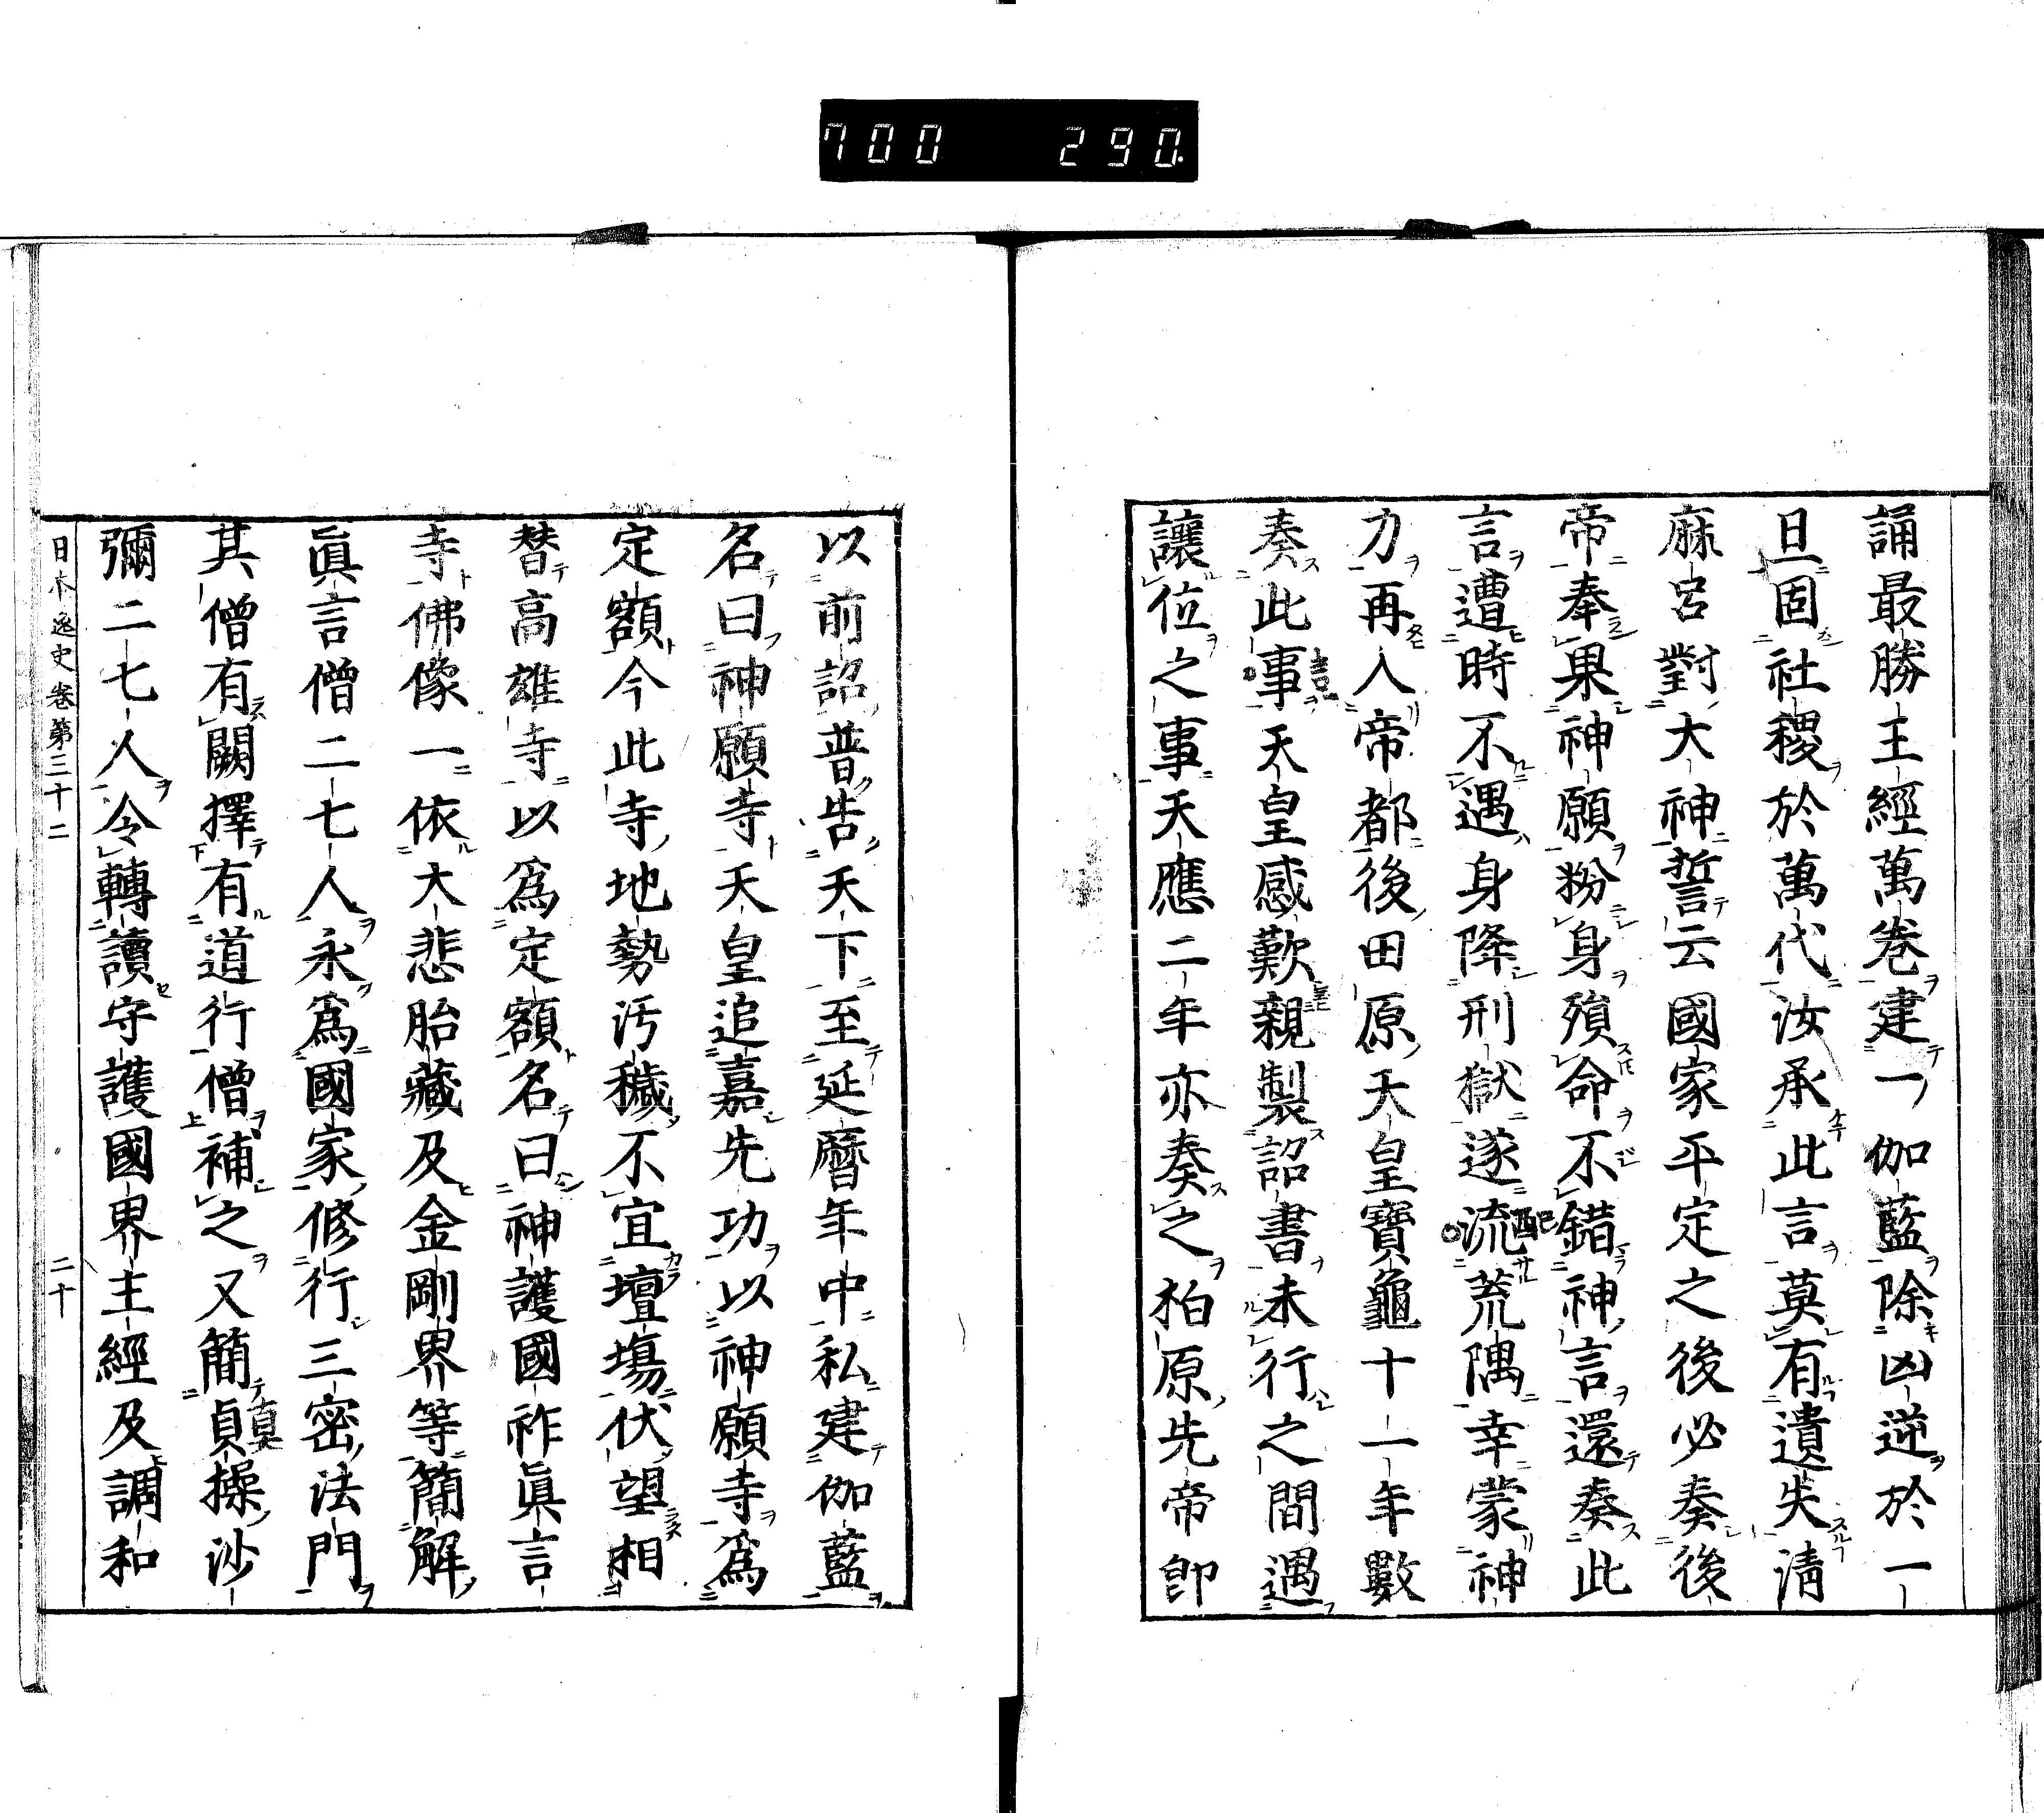 700 290.
誦最勝王經萬卷建一伽藍除凶逆於一
旦固社稷於萬代汝承此言莫有遺失清
麻呂對大神誓云國家平定之後必奏後
帝奉果神願粉身殞命不錯神言還奏此
言遭時不遇身降刑獄遂流荒隅幸蒙神
力再入帝都後田原天皇寶龜十一年敷
奏此事天皇感歎親製詔書未行之間遇
讓位之事天應二年亦奏之柏原先帝卽
以前詔普告天下至延曆年中私建伽藍
名曰神願寺天皇追嘉先功以神願寺爲
定額今此寺地勢汚穢不宜壇場伏望相
替高雄寺以爲定額名曰神護國祚眞言
寺佛像一依大悲胎藏及金剛界等簡解
眞言僧二七人永爲國家修行三密法門
其僧有闕擇有道行僧補之又簡貞操沙
彌二七人令轉讀守護國界主經及調和
日本逸史卷第三十二 二十